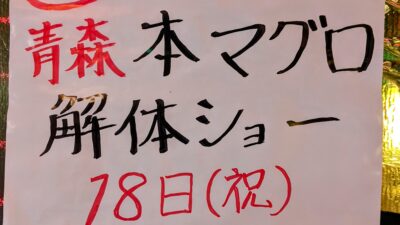 青森 本マグロ
解体ショー
18日(祝)